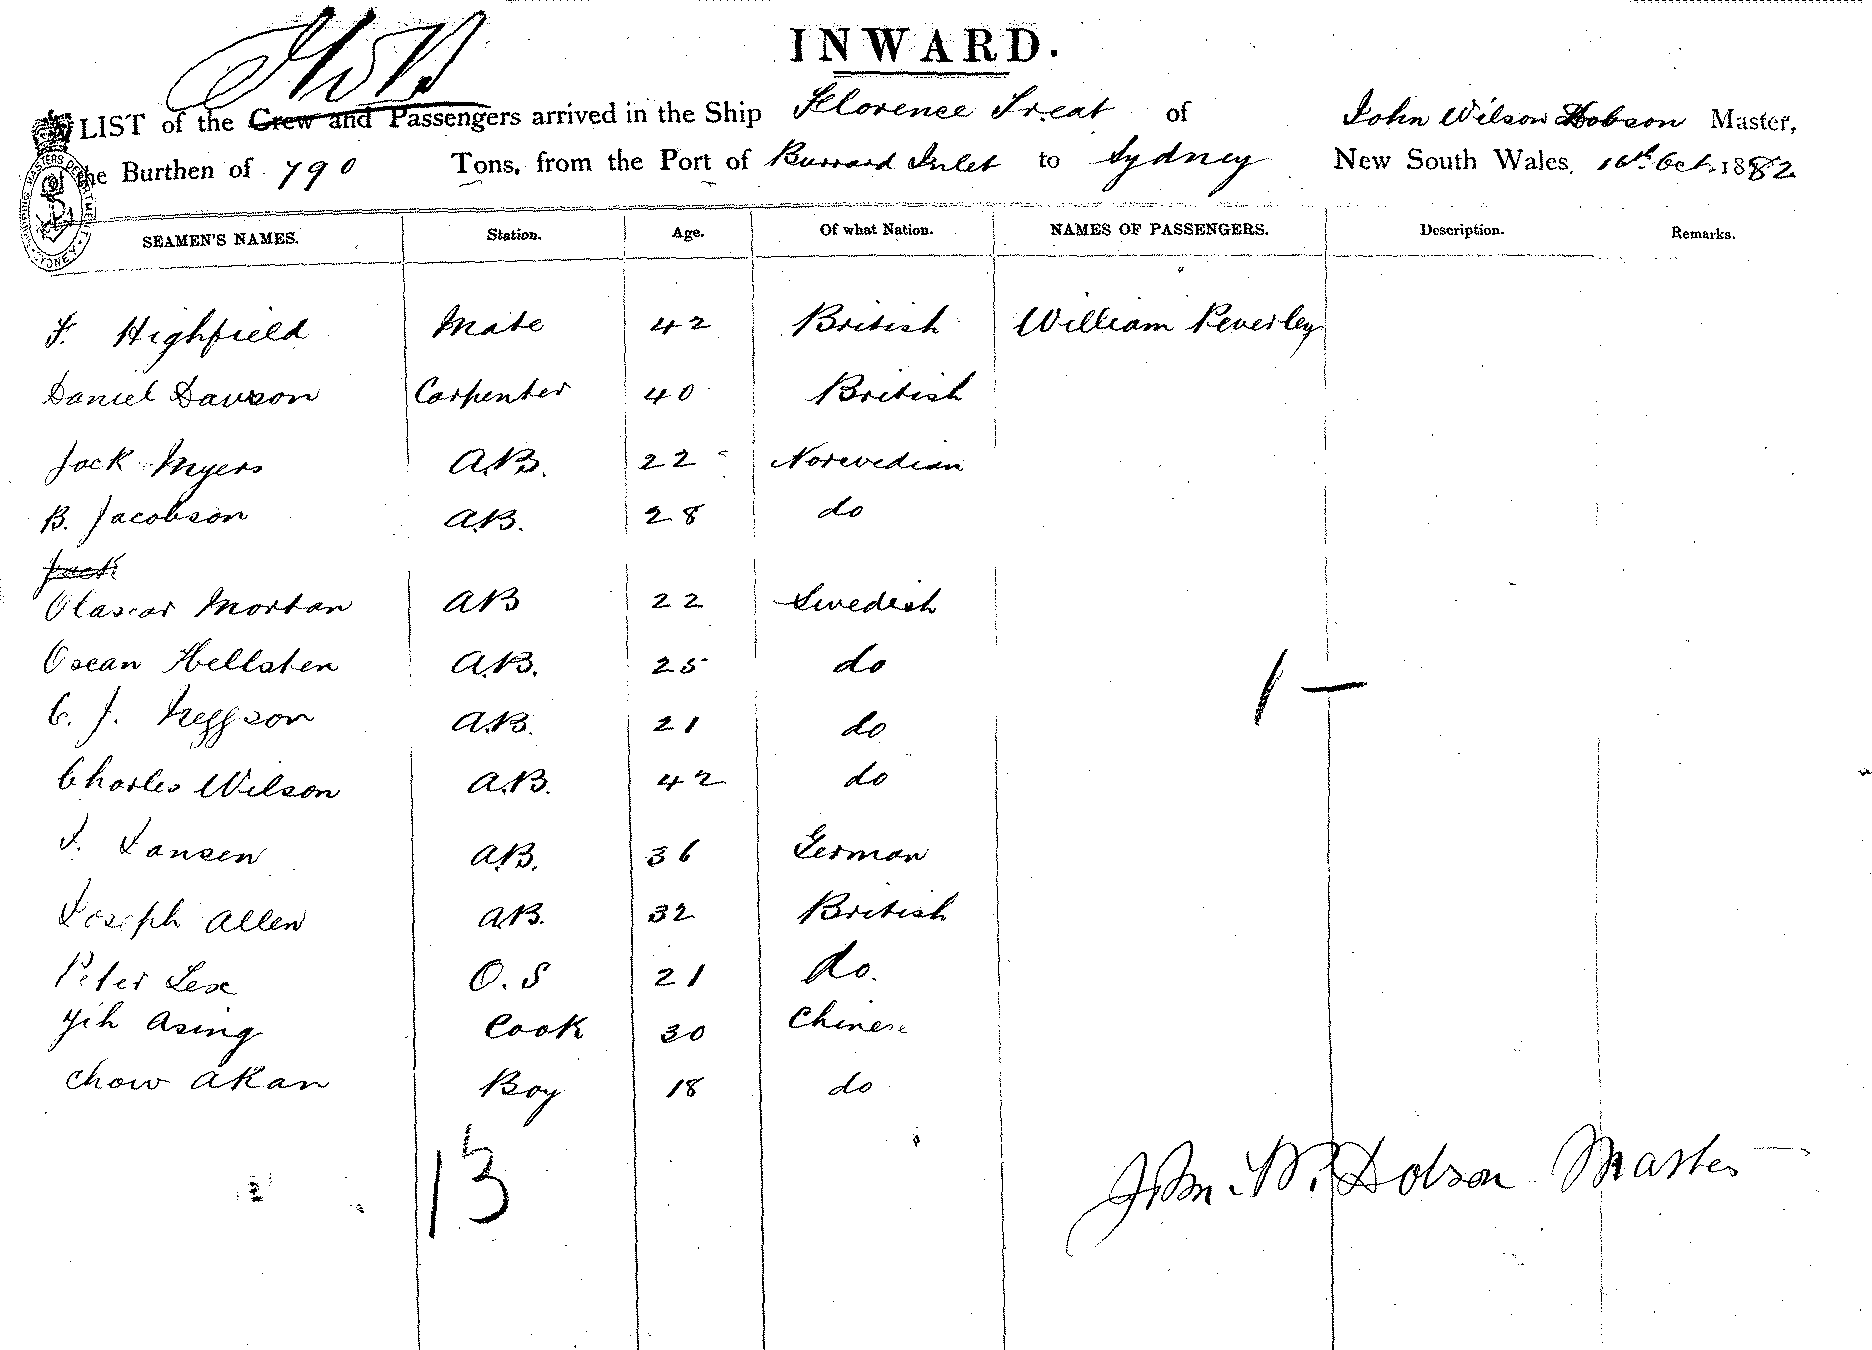 INWARD.
LIST of the Crew and Passengers arrived in the Ship Florence Treat of John Wilson Dobson Master,
of the Burthen of 790 Tons, from the Port of Burrard Inlet to Sydney New South Wales, 16th Oct. 1882
SEAMEN'S NAMES. Station. Age. Of what Nation. NAMES OF PASSENGERS. Description. Remarks.
F. Highfield Mate 42 British William Peverley
Daniel Dawson Carpenter 40 British
Jack Myers A.B. 22 Norwedian
B. Jacobson A.B. 28 do
Jack
Olascar Mortan AB 22 Swedish
Oscan Hellsten A.B. 25 do
C. J. Neffson A.B. 21 do
1 —
Charles Wilson A.B. 42 do
J. Jansen A.B. 36 German
Joseph Allen A.B. 32 British
Peter Lee O.S 21 do.
Yih Asing Cook 30 Chinese
Chow Akan Boy 18 do
13
John W. Dobson Master